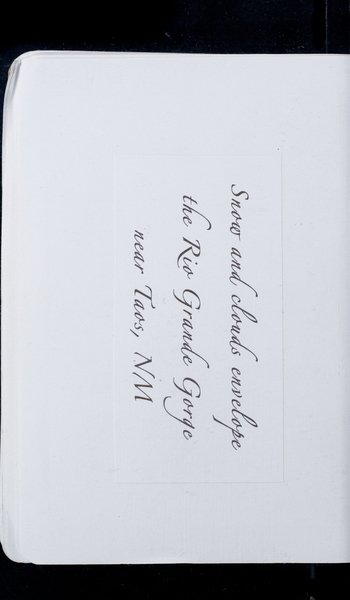 Snow and clouds envelope
the Rio Grande Gorge
near Taos, NM